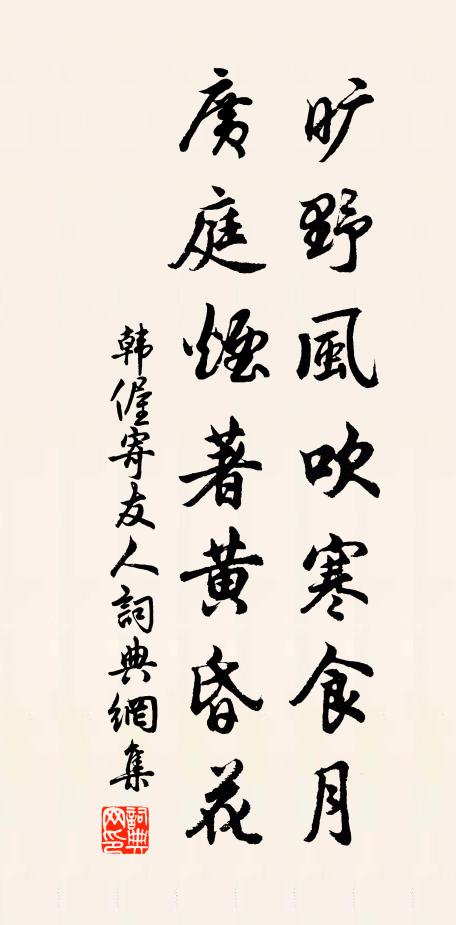 旷野風吹寒食月
廣庭煙著黄昏花
韩偓寄友人詞典網集
詞典網印